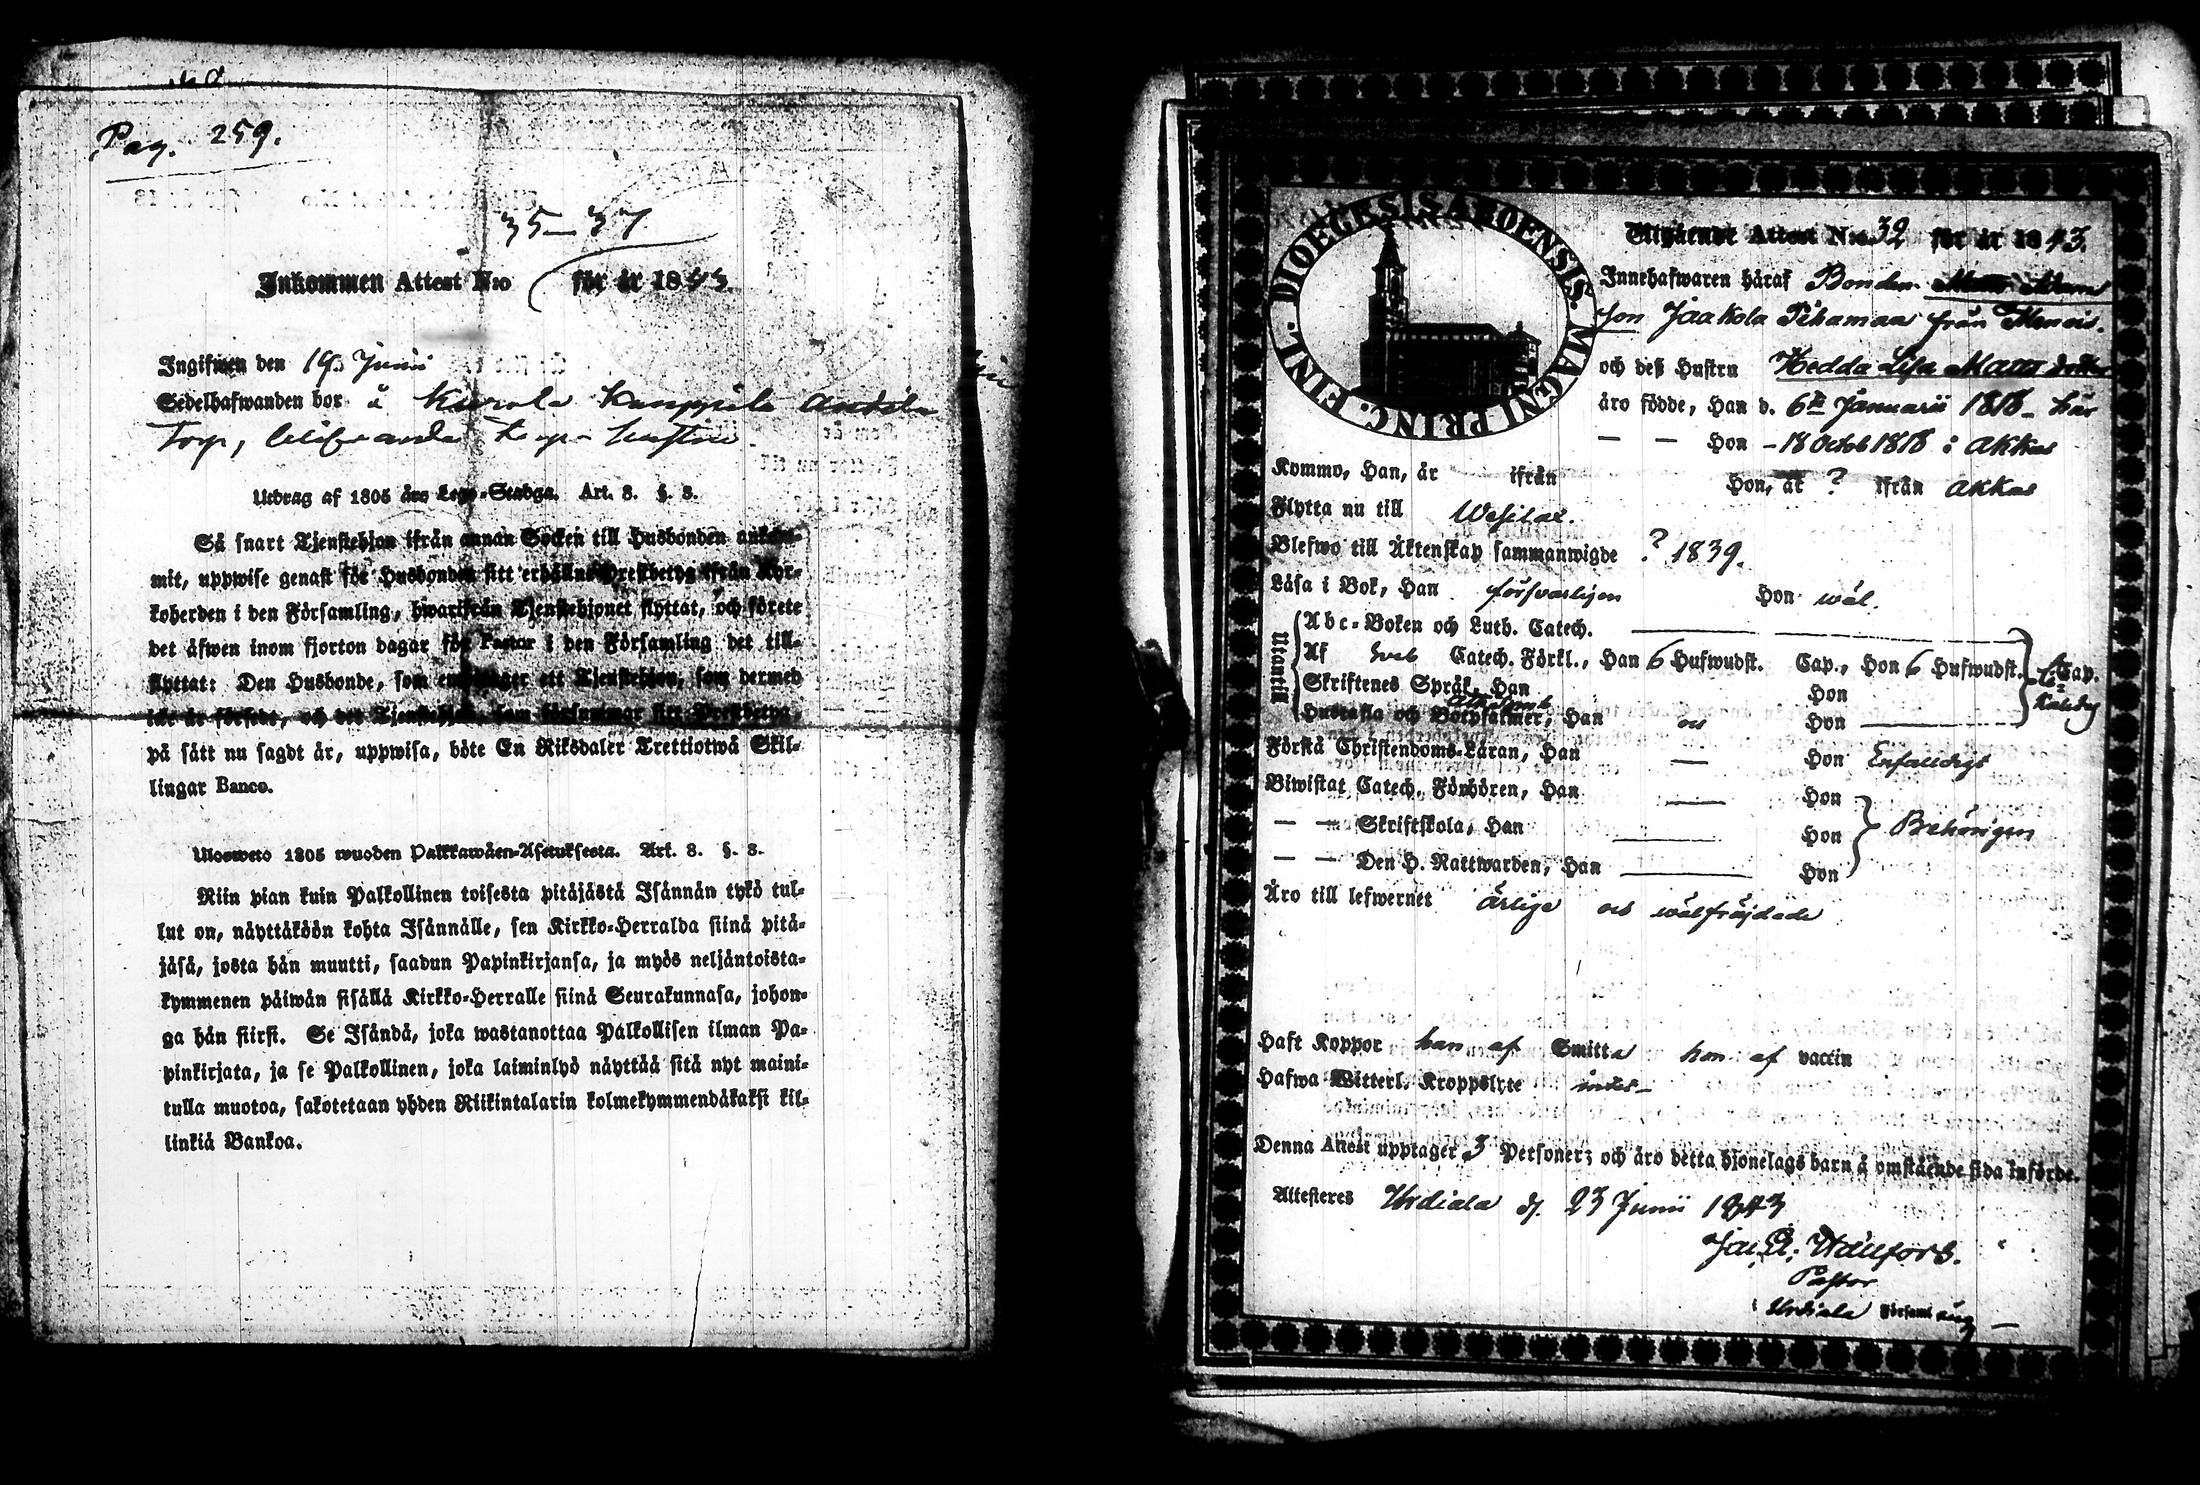 Pag. 259.
35-37
Inkommen Attest N:o för år 1843.
Ingifwen den 19 Junii
Sedelhafwanden bor å
Torp,
Utdrag af 1805 års Lego-Stadga. Art. 8. §. 8.
Så snart Tjenstehjon ifrån annan Socken till Husbonden ankom-
mit, uppwise genast för Husbonden sitt erhållne Prestbetyg ifrån Kyr-
koherden i den Församling, hwarifrån Tjenstehjonet flyttat, och förete
det äfwen inom fjorton dagar för Pastor i den Församling det till-
flyttat: Den Husbonde, som emottager ett Tjenstehjon, som dermed
icke är försedt, och det Tjenstehjon, som försummar sitt Prestbetyg,
på sätt nu sagdt är, uppwisa, böte En Riksdaler Trettiotwå Skil-
lingar Banco.
Ulosweto 1805 wuoden Palkkawäen-Asetuksesta. Art. 8. §. 8.
Niin pian kuin Palkollinen toisesta pitäjästä Isännän tykö tul-
lut on, näyttäköön kohta Isännälle, sen Kirkko-Herralda siinä pitä-
jäsä, josta hän muutti, saadun Papinkirjansa, ja myös neljäntoista-
kymmenen päiwän sisällä Kirkko-Herralle siinä Seurakunnasa, johon-
ga hän siirsi. Se Isändä, joka wastanottaa Palkollisen ilman Pa-
pinkirjata, ja se Palkollinen, joka laiminlyö näyttää sitä nyt maini-
tulla muotoa, sakotetaan yhden Riikintalarin kolmekymmendäkaksi kil-
linkiä Bankoa.
FINL. DIOECESIS ABOENSIS. MAGNI PRINC.
Utgående Attest N:o 32 för år 1843.
Innehafwaren häraf Bonden
son Jaakola Pihamaa från Menois.
och deß Hustru Hedda Lisa Matts dotter
äro födde, Han d. 6te Januarii 1818 - här
— — Hon - 18 Octob 1818 i Akkas
Kommo, Han, år ifrån Hon, år ? ifrån Akkas
Flytta nu till Wesilax.
Blefwo till Äktenskap sammanwigde ? 1839.
Läsa i Bok, Han försvarligen Hon wäl.
Utantill
Abc-Boken och Luth. Catech.
Af Catech. Förkl., Han 6 Hufwudst. Cap., Hon 6 Hufwudst. Cap.
Skriftenes Språk, Han Hon
Hustafla och Botpsalmer, Han Hon
Förstå Christendoms-Läran, Han — Hon Enfaldigt
Biwistat Catech. Förhören, Han — Hon
— — Skriftskola, Han — Hon Behörigen
— — Den H. Nattwarden, Han — Hon
Äro till lefwernet ärlige och wälfräjdade
Haft Koppor han af Smitta hon af vaccin
Hafwa Witterl. Kroppslyte intet
Denna Attest upptager 3 Personer; och äro detta hjonelags barn å omstående sida införde.
Attesteres Urdiala d. 23 Junii 1843
Wallfors.
Pastor
Urdiala Församling